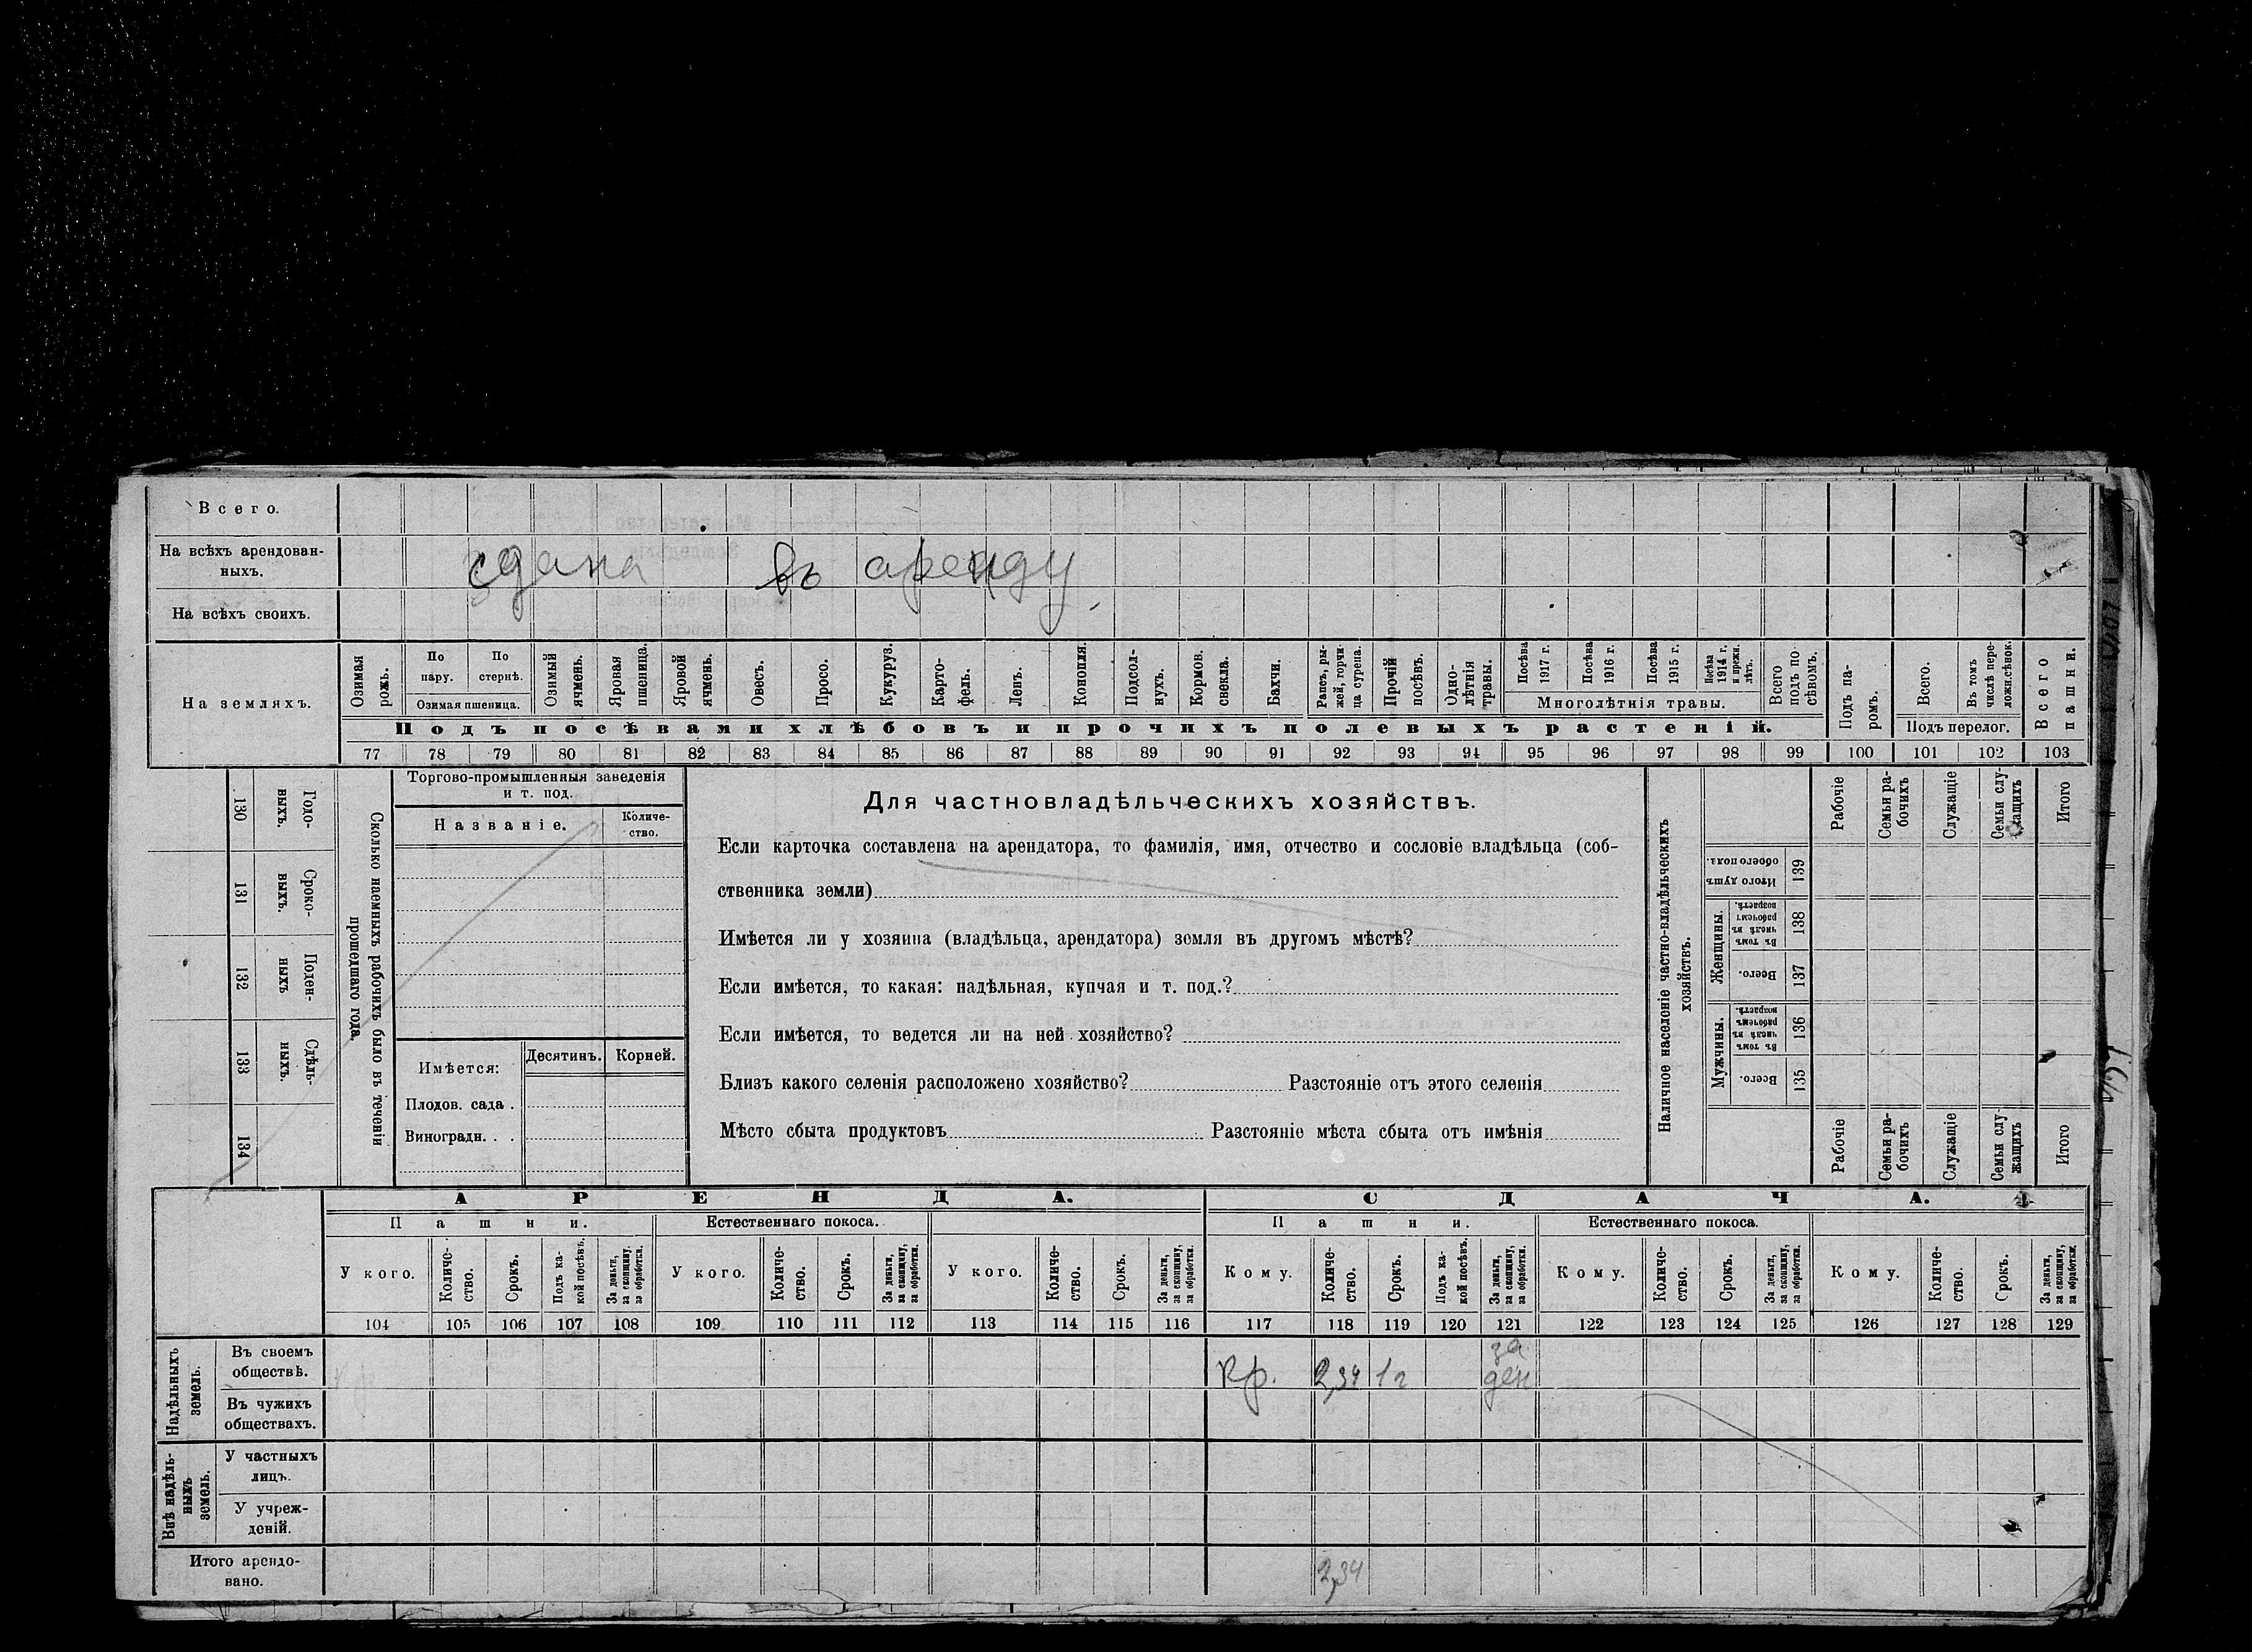 Всего.
На всѣхъ арендован-
ныхъ.
сдана въ аренду
На всѣхъ своихъ.
На земляхъ.
Озимая рожь.
По пару.
По стернѣ.
Озимая пшеница.
Озимый ячмень.
Яровая пшеница.
Яровой ячмень.
Овесъ.
Просо.
Кукуруз.
Карто-
фель.
Ленъ.
Конопля.
Подсол-
нухъ.
Кормов. свекла.
Бахчи.
Рапсъ, ры-
жей, горчи-
ца сурепа.
Прочій посѣвъ.
Одно-
лѣтнія травы.
Посѣва 1917 г.
Посѣва 1916 г.
Посѣва 1915 г.
Посѣва 1914 г. и прежн. лѣтъ.
Многолѣтнія травы.
Всего подъ по-
сѣвомъ.
Подъ па-
ромъ.
Всего.
Въ томъ числѣ пере-
ложн.сѣнок.
Подъ перелог.
Всего пашни.
Подъ посѣвами хлѣбовъ и прочихъ полевыхъ растеній.
77 78 79 80 81 82 83 84 85 86 87 88 89 90 91 92 93 94 95 96 97 98 99 100 101 102 103
Сколько наемныхъ рабочихъ было въ теченіи
прошедшаго года.
Годо-
выхъ.
130
Сроко-
выхъ.
131
Поден-
ныхъ
132
Сдѣль-
ныхъ.
133
134
Торгово-промышленныя заведенія
и т. под.
Названіе.
Количе-
ство.
Имѣется:
Десятинъ.
Корней.
Плодов. сада .
Виноградн. . .
Для частновладѣльческихъ хозяйствъ.
Если карточка составлена на арендатора, то фамилія, имя, отчество и сословіе владѣльца (соб-
ственника земли)
Имѣется ли у хозяина (владѣльца, арендатора) земля въ другомъ мѣстѣ?
Если имѣется, то какая: надѣльная, купчая и т. под.?
Если имѣется, то ведется ли на ней хозяйство?
Близъ какого селенія расположено хозяйство? Разстояніе отъ этого селенія
Мѣсто сбыта продуктовъ Разстояніе мѣста сбыта отъ имѣнія
Наличное населеніе частно-владѣльческихъ
хозяйствъ.
Рабочіе
Семьи ра-
бочихъ
Служащіе
Семьи слу-
жащихъ
Итого
Итого душъ
обоего пола.
139
Женщины.
Въ томъ
числѣ въ
рабочемъ
возрастѣ.
138
Всего.
137
Мужчины.
Въ томъ
числѣ въ
рабочемъ
возрастѣ.
136
Всего.
135
Рабочіе
Семьи ра-
бочихъ
Служащіе
Семьи слу-
жащихъ
Итого
АРЕНДА.
СДАЧА.
Пашни.
Естественнаго покоса.
Пашни.
Естественнаго покоса.
У кого.
Количе-
ство.
Срокъ.
Подъ ка-
кой посѣвъ.
За деньги,
за скопщину,
за обработки.
У кого.
Количе-
ство.
Срокъ.
За деньги,
за скопщину,
за обработки.
У кого.
Количе-
ство.
Срокъ.
За деньги,
за скопщину,
за обработки.
Кому.
Количе-
ство.
Срокъ.
Подъ ка-
кой посѣвъ.
За деньги,
за скопщину,
за обработки.
Кому.
Количе-
ство.
Срокъ.
За деньги,
за скопщину,
за обработки.
Кому.
Количе-
ство.
Срокъ.
За деньги,
за скопщину,
за обработки.
104 105 106 107 108 109 110 111 112 113 114 115 116 117 118 119 120 121 122 123 124 125 126 127 128 129
Надѣльныхъ
земель.
Въ своемъ
обществѣ.
кр. 2,34 1 г за
ден
Въ чужихъ
обществахъ.
Внѣ надѣль-
ныхъ
земель.
У частныхъ
лицъ.
У учреж-
деній.
Итого арендо-
вано.
2,34